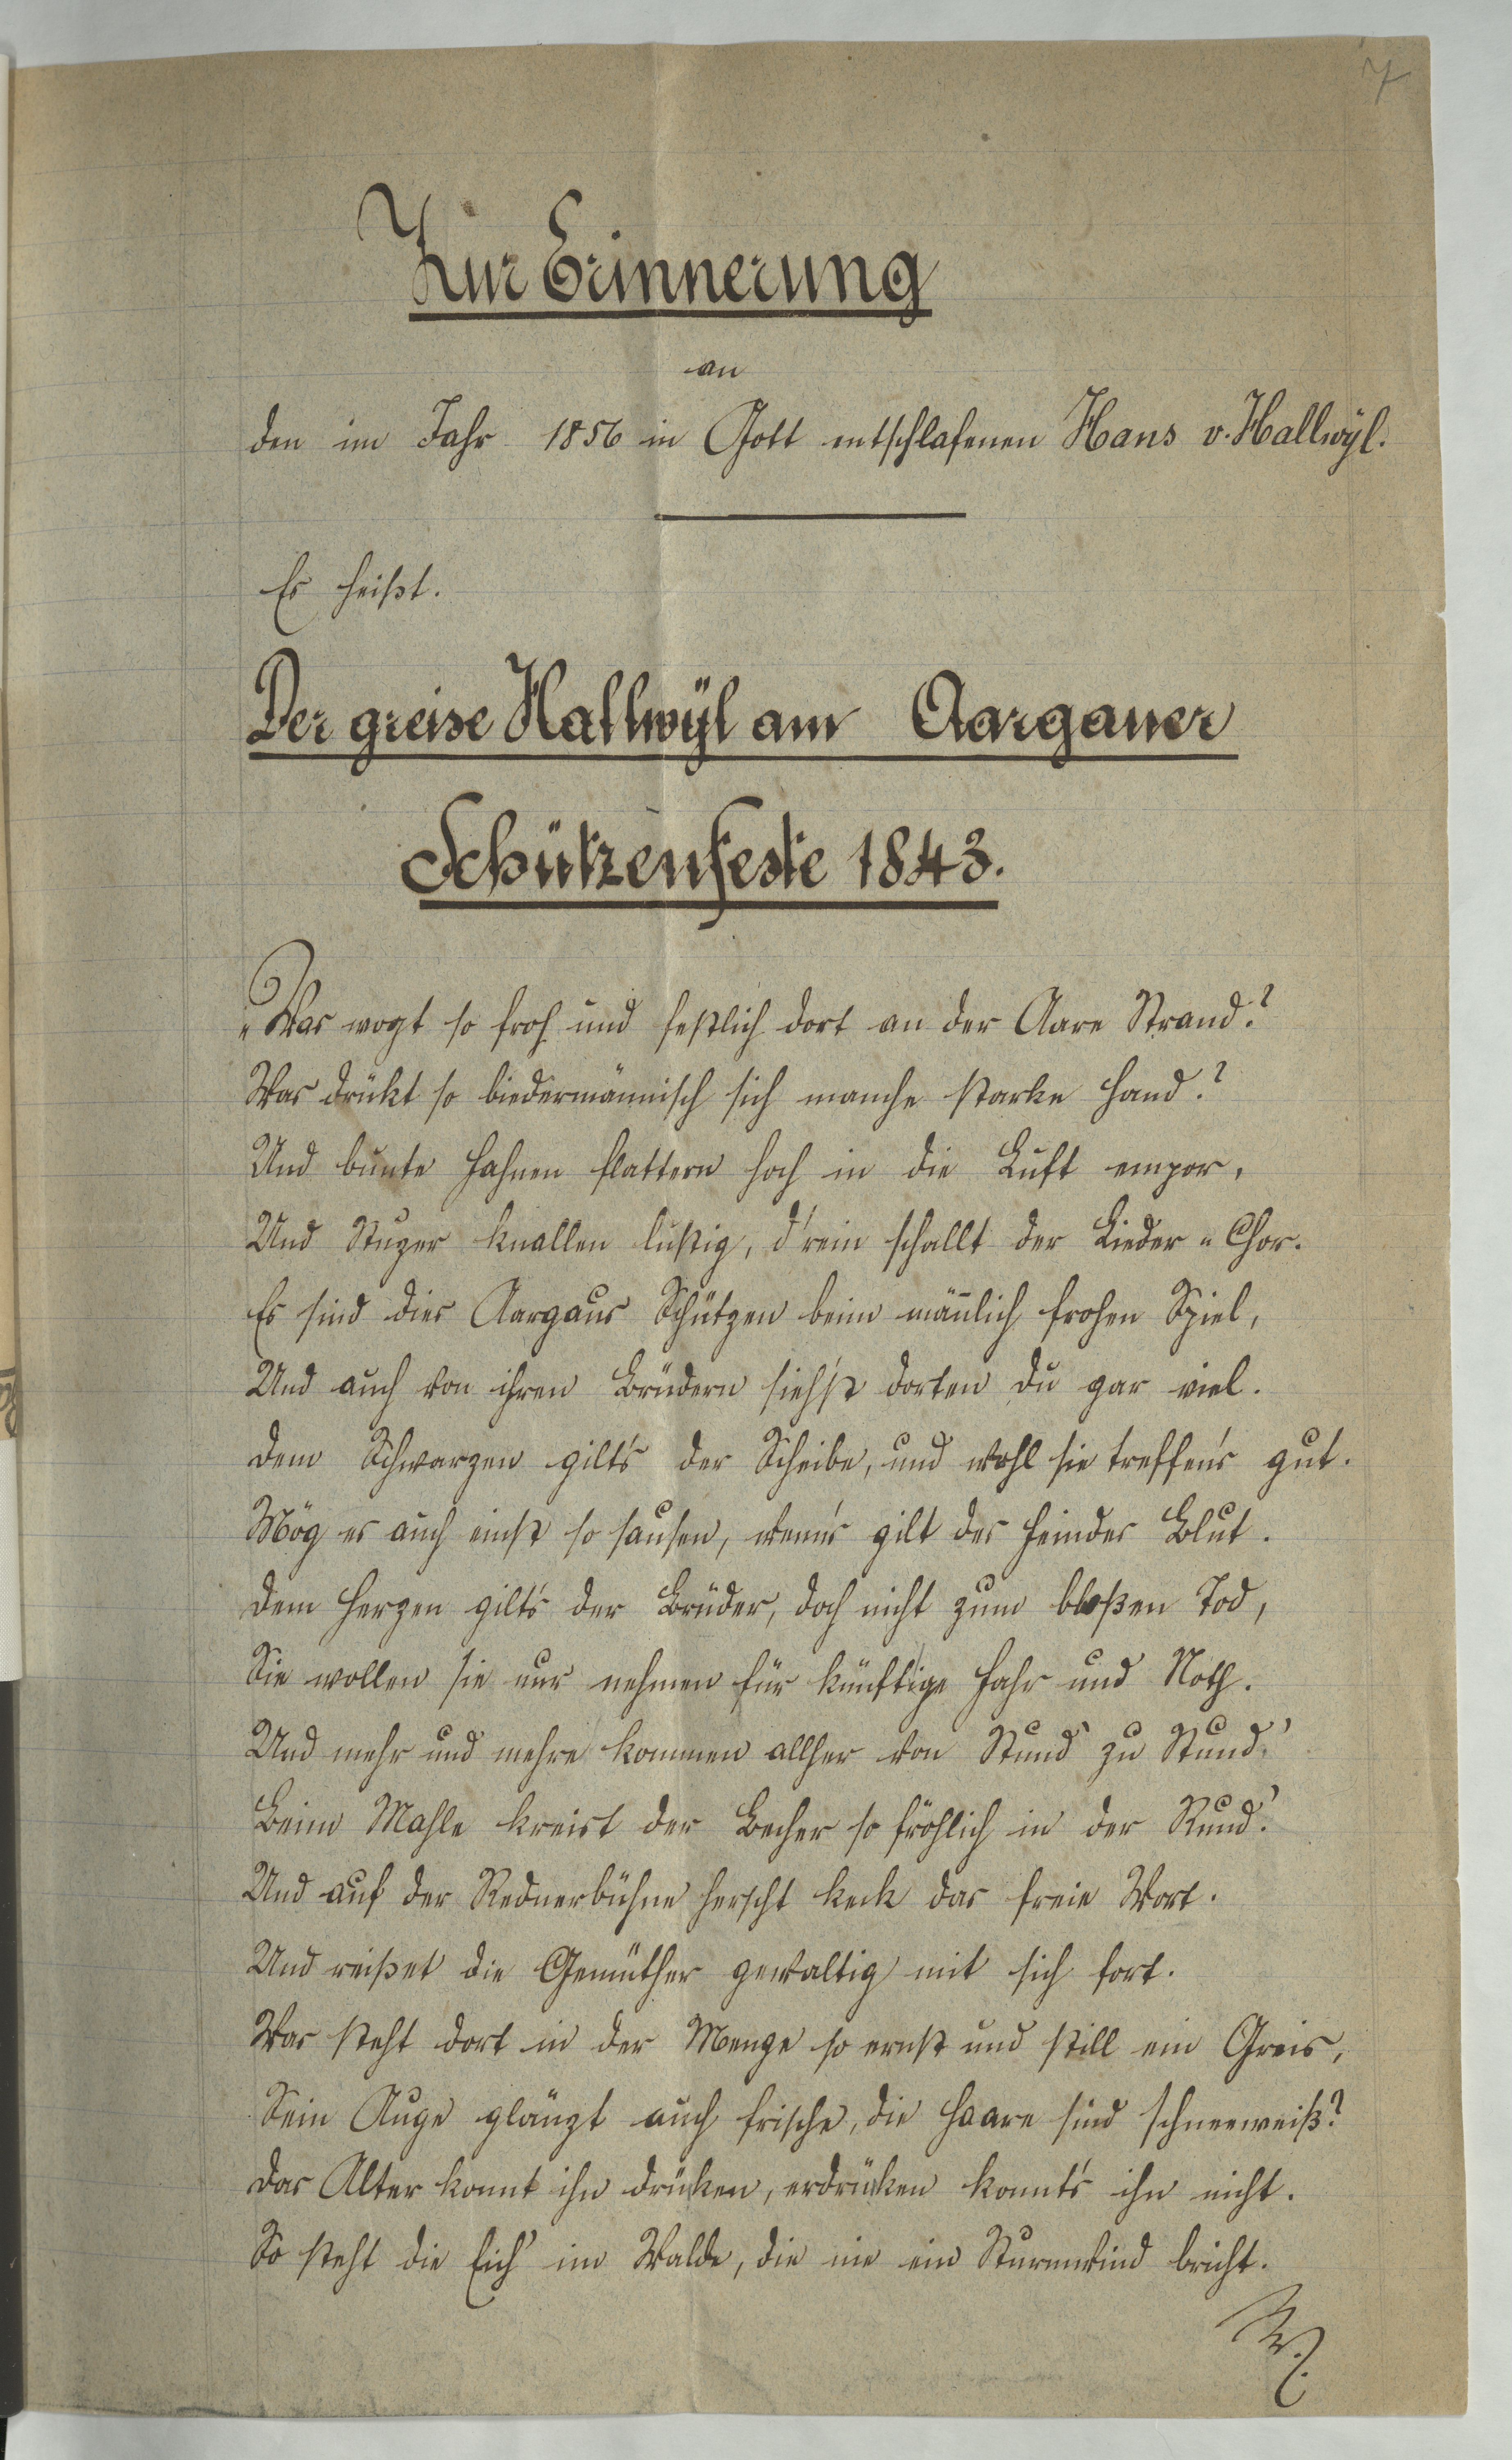 7
Zur Erinnerung
an
den im Jahr 1856 in Gott entschlafenen Hans v. Hallwÿl.
Es heißt.
Der greise Hallwÿl am Aargauer
Schützenfeste 1843.
„Was wogt so froh und festlich dort an der Aare Strand?
Was drükt so biedermännisch sich manche starke Hand?
Und bunte Fahnen flattern hoch in die Luft empor,
Und Stuzer knallen lustig, d'rein schallt der Lieder-Chor.
Es sind dies Aargaus Schützen beim män̄lich frohen Spiel,
Und auch von ihren Brüdern sieh'st dorten du gar viel.
Dem Schwarzen gilt's der Scheibe, und wohl sie treffen's gut.
Mög es auch einst so sausen, wenn's gilt des Feindes Blut.
Dem Herzen gilt's der Brüder, doch nicht zum bloßen Tod,
Sie wollen sie nur nehmen für künftige Fahr und Noth.
Und mehr und mehre kommen allher von Stund' zu Stund'
Beim Mahle kreist der Becher so fröhlich in der Rund'.
Und auf der Rednerbühne herscht keck das freie Wort.
Und reißet die Gemüther gewaltig mit sich fort.
Was steht dort in der Menge so ernst und still ein Greis,
Sein Auge glänzt auch frische, die Haare sind schneeweiß?
Das Alter konnt ihn drüken, erdrüken konnt's ihn nicht.
So steht die Eich' im Walde, die nie ein Sturmwind bricht.